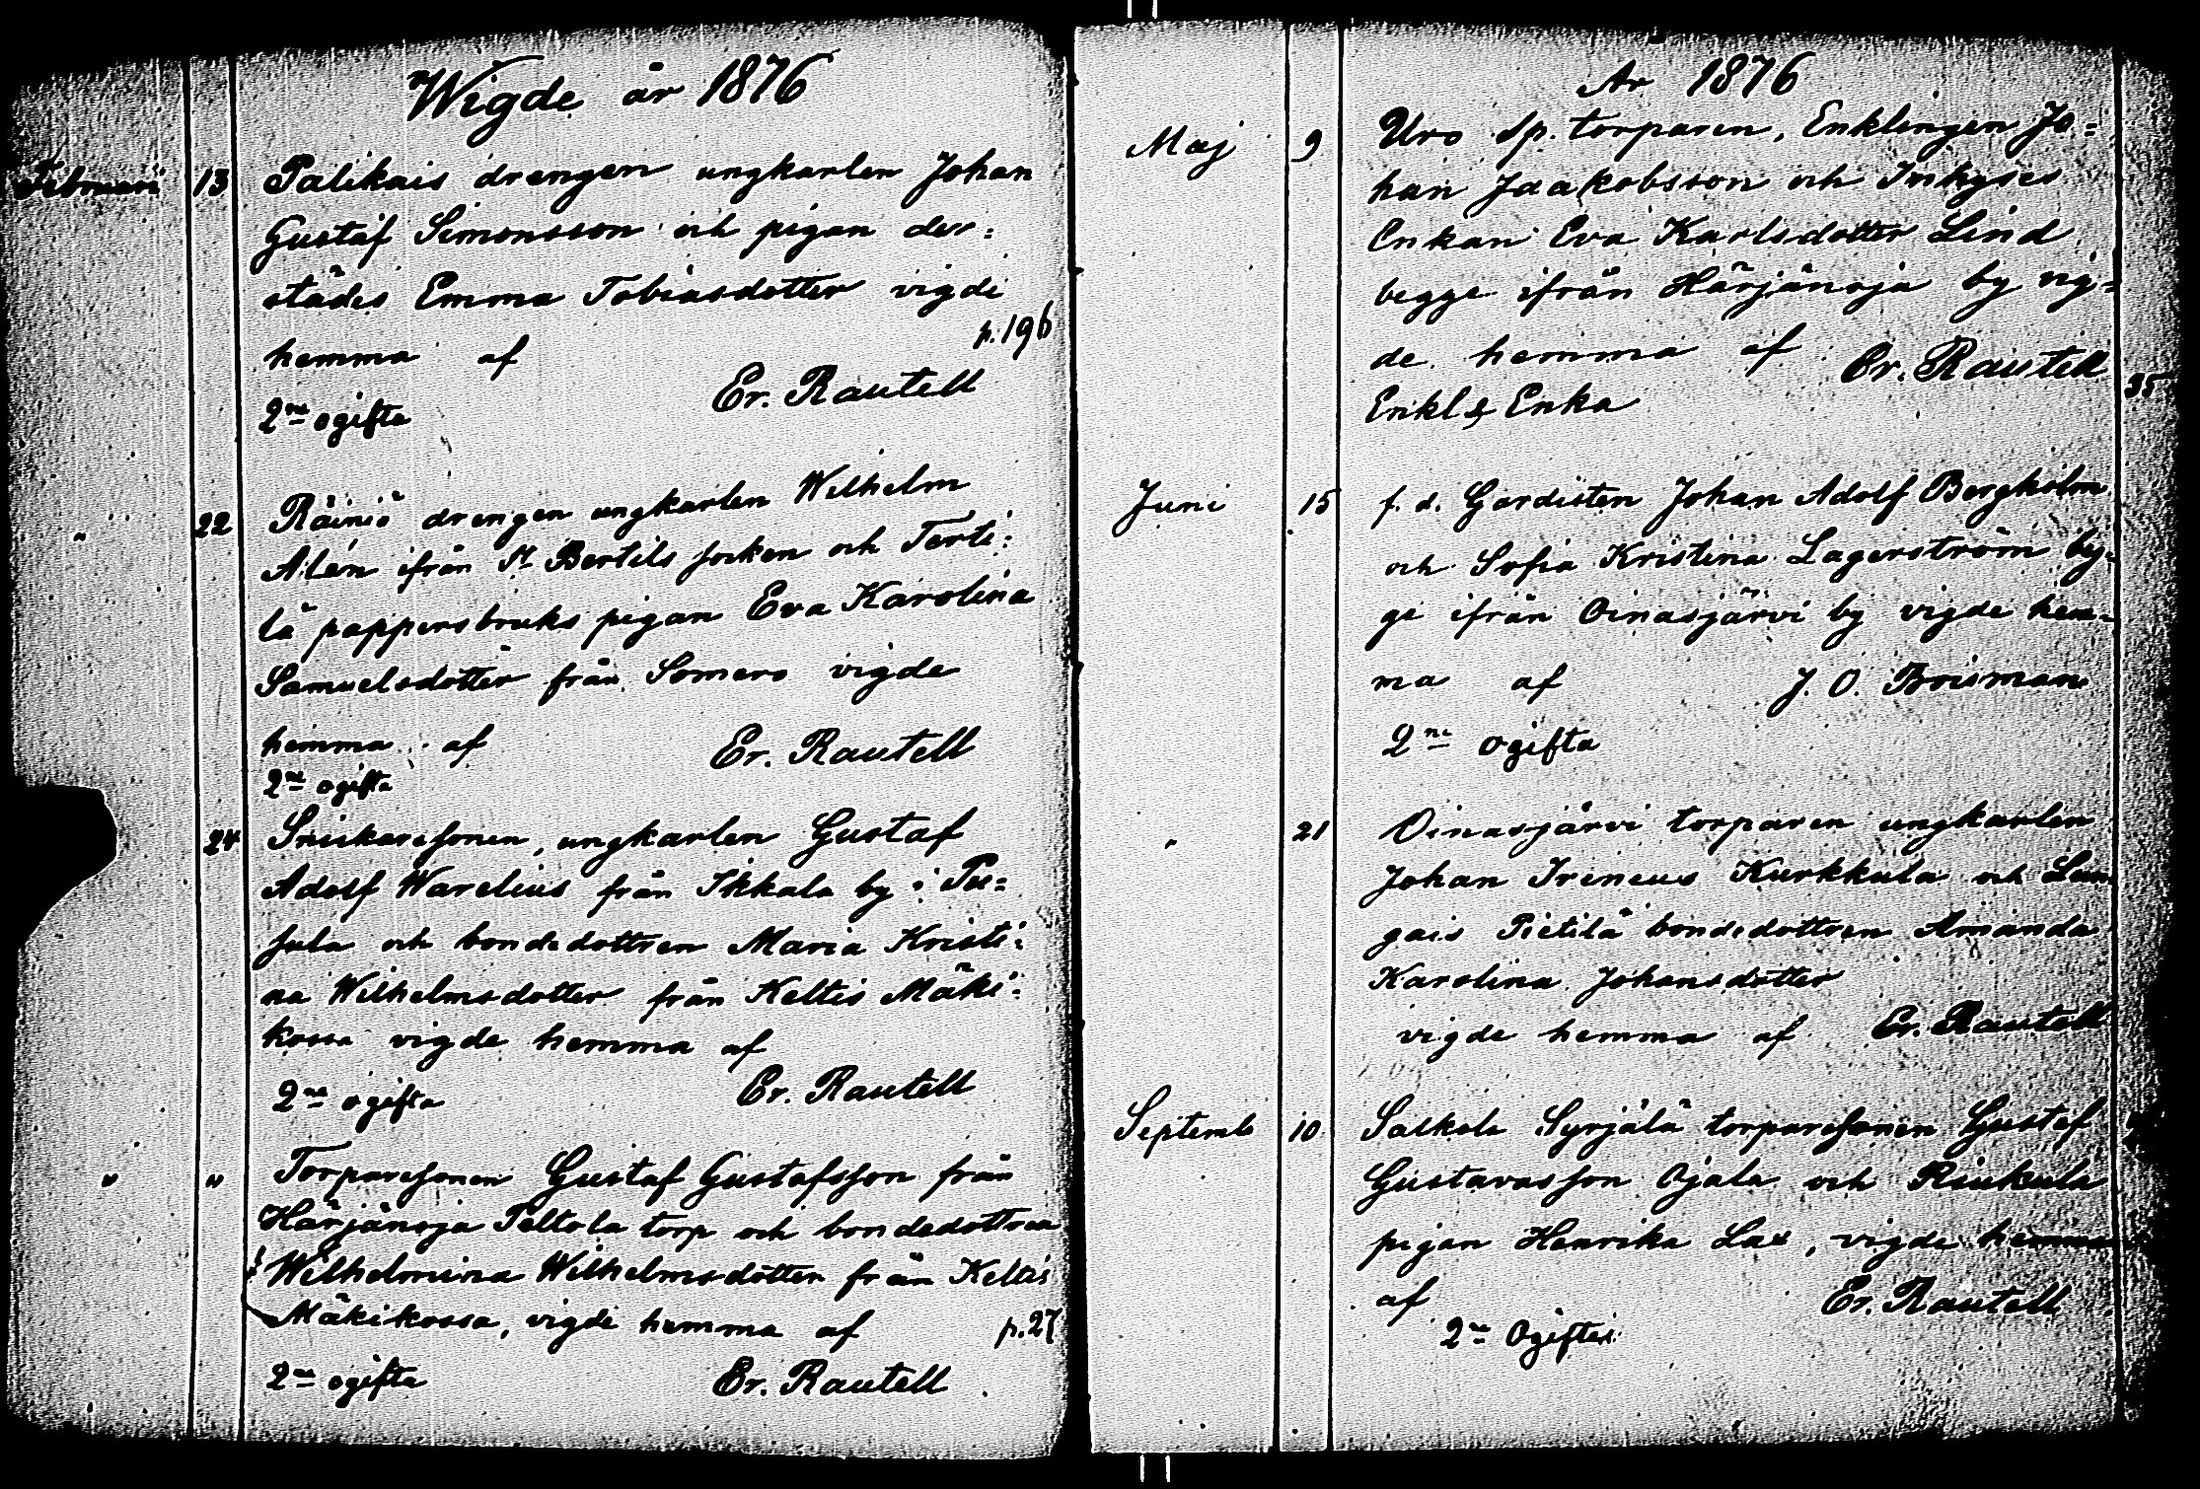 Wigde år 1876
Februari 13 Palikais drengen ungkarlen Johan
Gustaf Simonsson och pigan der=
städes Emma Tobiasdotter vigde
p. 196
hemma af
Er. Rautell
2ne ogifta
" 22 Räiniö drengen ungkarlen Wilhelm
Alén ifrån St Bertils socken och Terti=
lä pappersbruks pigan Eva Karolina
Samuelsdotter från Somero vigde
hemma af Er. Rautell
2ne ogifta
24 Snickaresonen, ungkarlen Gustaf
Adolf Warelius från Ikkala by i Pu=
sula och bondedottren Maria Kristi=
na Wilhelmsdotter från Keltis Mäki=
kossa vigde hemma af
2ne ogifta Er. Rautell
" " Torparesonen Gustaf Gustafsson från
Härjänoja Peltola torp och bondedottren
Wilhelmina Wilhelmsdotter från Keltis
Mäkikossa, vigde hemma af p. 27
2ne ogifta Er. Rautell
År 1876
Maj 9 Uro sp. torparen, Enklingen Jo=
han Jaakobsson och
Enkan Eva Karlsdotter Lind
begge ifrån Härjänoja by vig=
de hemma af Er. Rautell
35
Enkl & Enka
Juni 15 f. d. Gardisten Johan Adolf Bergholm
och Sofia Kristina Lagerström beg=
ge ifrån Oinasjärvi by vigde hem=
ma af J. O. Brisman
2ne ogifta
" 21 Oinasjärvi torparen ungkarlen
Johan Ireneus Kurkkula och Lau=
gais Pietilä bondedottren Amanda
Karolina Johansdotter
vigde hemma af Er. Rautell
Septemb 10 Salkola Syrjälä torparesonen Gustaf
Gustavasson Ojala och Riukula
pigan Henrika Lax, vigde hemma
af Er. Rautell
2ne Ogifta